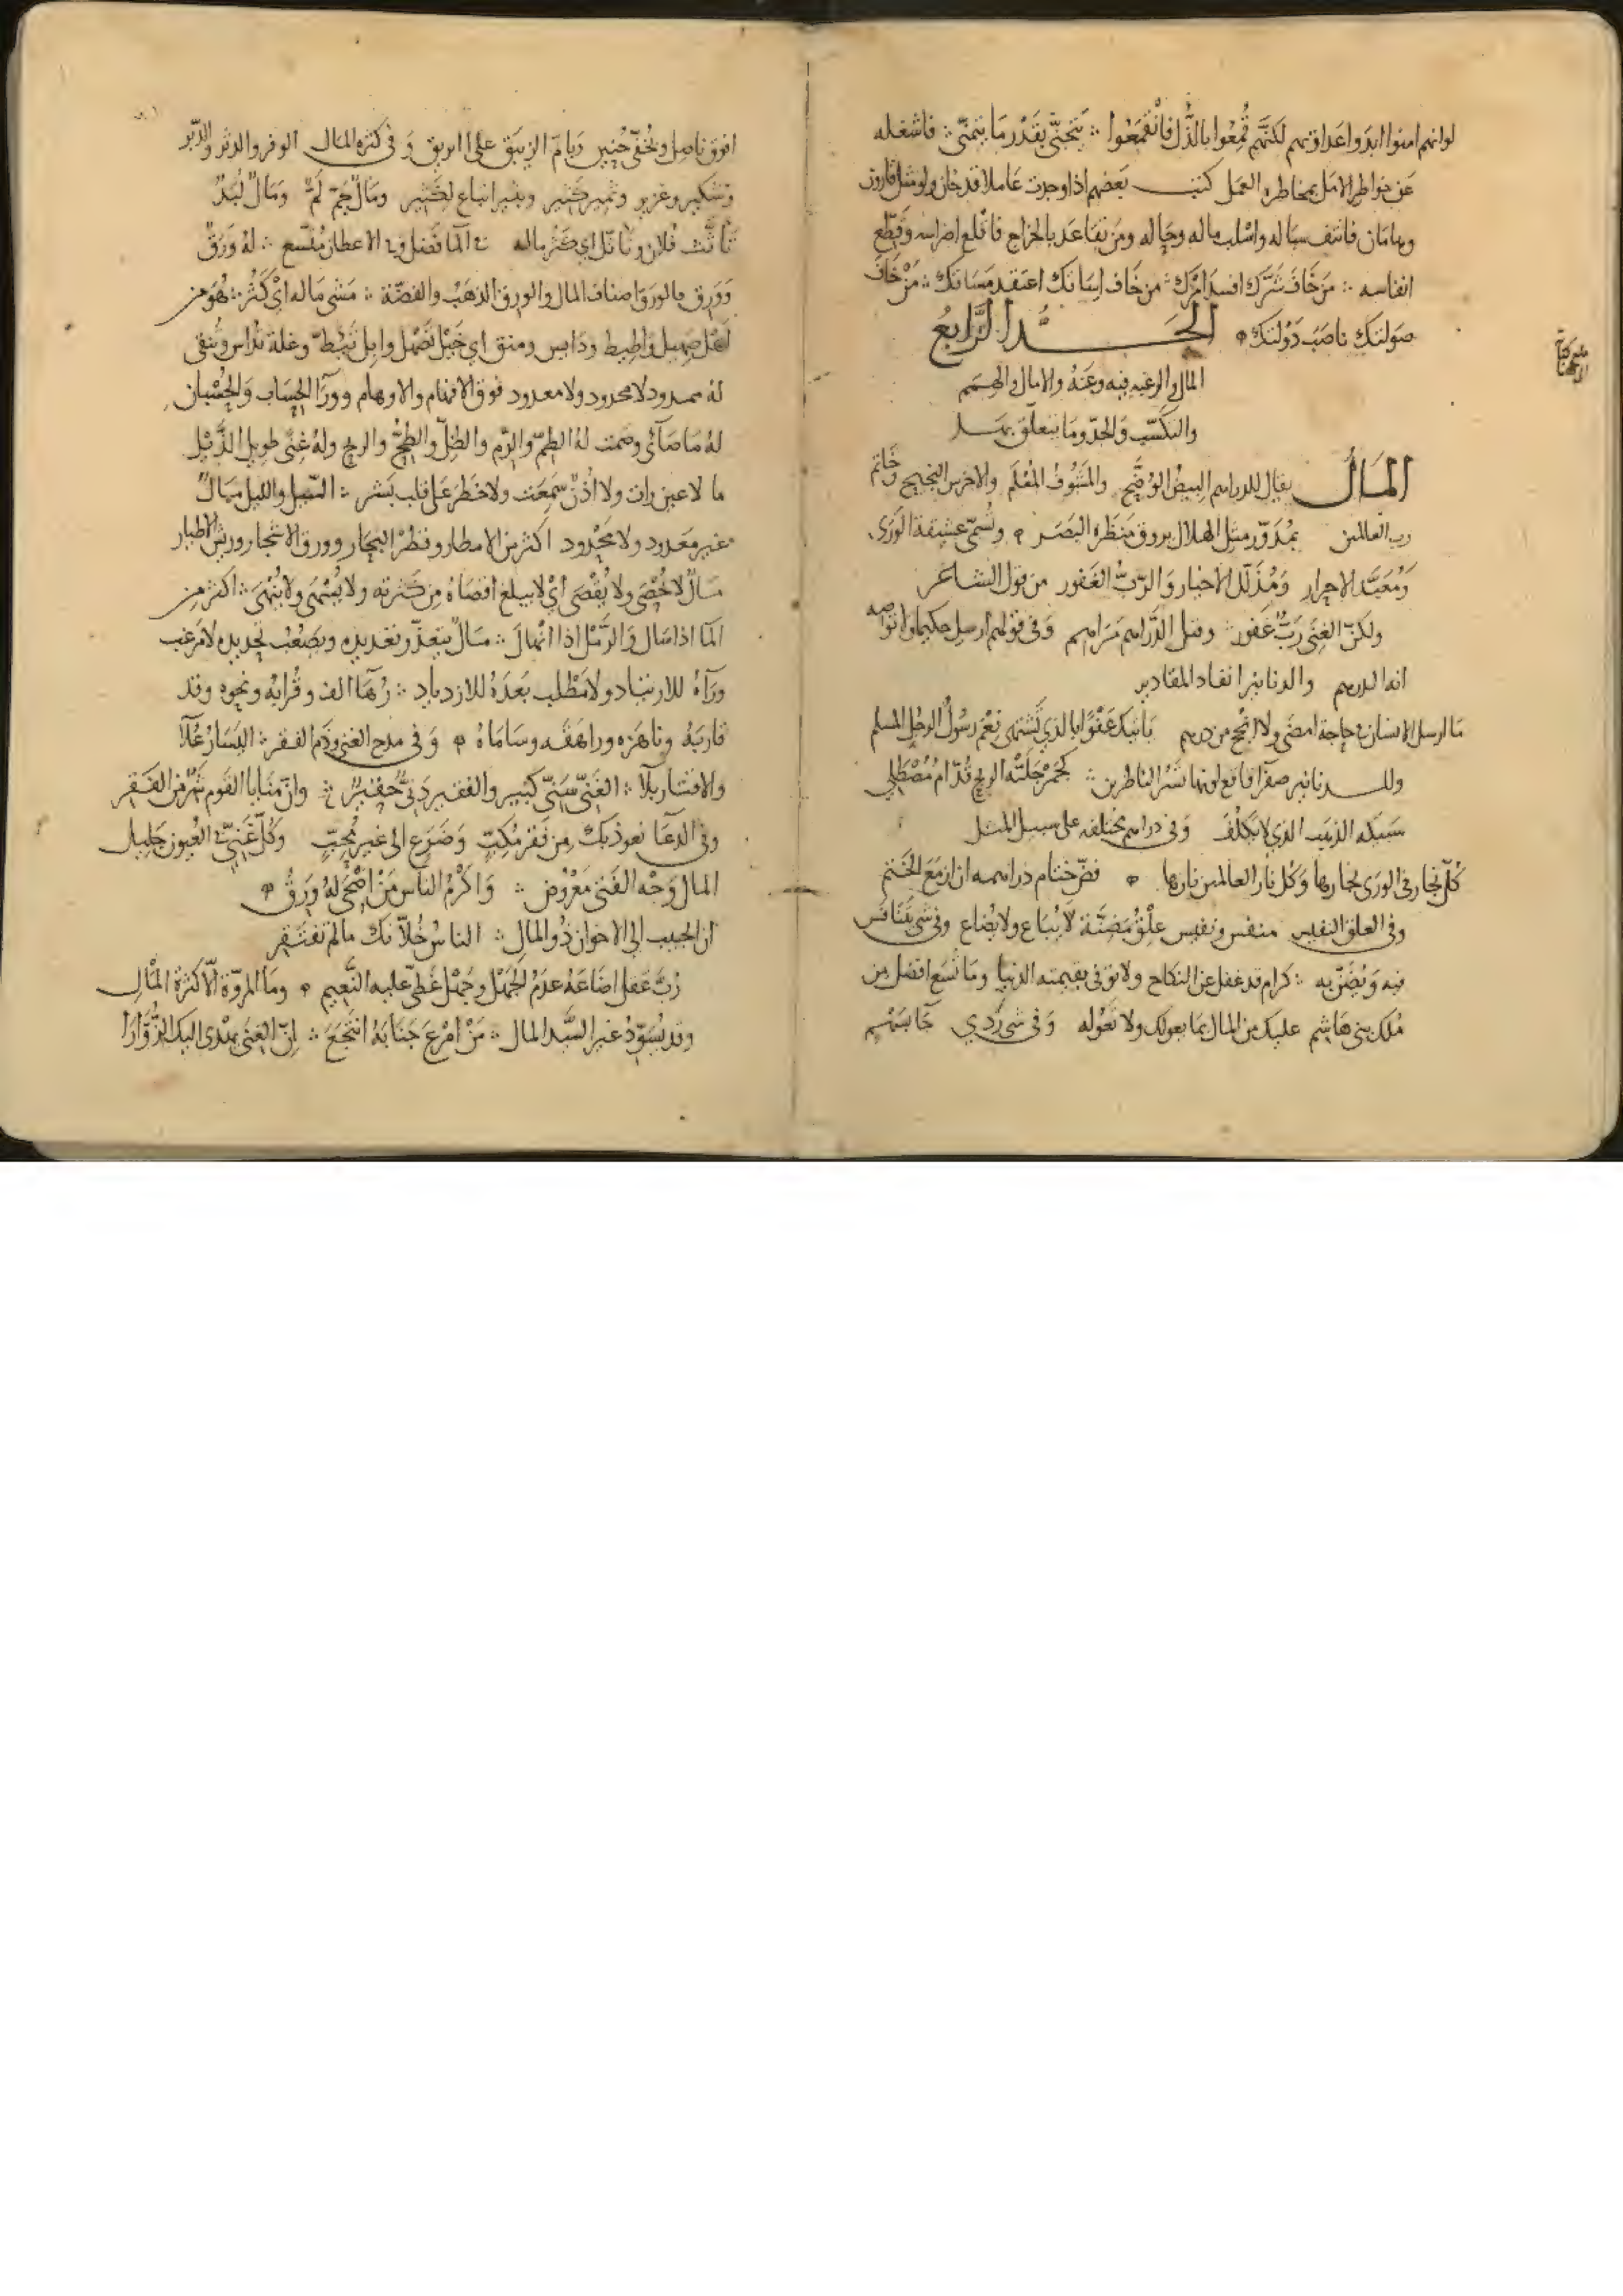 لو انهم امنوا ابدوا عداوتهم لكنهم قُمِعُوا بالذُّل فانْقَمَعُوا ∴ يَتَجنّى بقَدْر مَا يتمنّى ∴ فاشغله
عَن خواطر الامَل بمخاطره العمَل كتب بَعضهم اذا وجدت عَاملا قد خان ولو مثل قارون
وهامَان فانتف سبَاله واسْلب ماله وحَاله ومَن تقَاعَد بالخراج فاقْلع اضراسه وَقطّع
انفاسه ∴ مَن خَافَ شَرَّك افسد امْرَك ∴ من خَاف اسَاتك اعتقد مَسَاتك ∴ مَنْ خَافَ
صَولتَك ناصَبَ دَوْلتَك
الحَدُّ الرَّابعُ
المال والرغبه فيه وعَنهُ والامال والهمم
والتكسّب والجدّ ومَا يتعلّق بهَا
المَالُ يقال للدراهم البيضُ الوُضّح والمَشُوفُ المُعْلَم والاخرس النجيح وخَاتم
رب العالمين بمُدَوّر مثل الهلال يروق مَنظَره البَصَر وتُسمّى عشيقة الوَرَى
وَمُعَبّد الاحرار وَمُذَلّل الاخيار وَالرّبّ الغَفور من قول الشاعر
ولكنّ الغِنَى رَبّ غَفور ∴ وقيل الدَّراهم مَراهم وَفى قولهم ارسل حكيما ولا توصه
انه الدرهم والدنانير انفاد المقادير
مَا ارسل الانسان فى حاجة امضَى ولا انْجح من درهم يَاتيكَ عَفْوًا بالذي تَشتهى نِعْمَ رسُولُ الرجُل المُسلم
وللدنانير صفرآ فاقع لونها تَسُرّ الناظرين ∴ كَجَمْرٍ جَلَتْه الريح قُدّامَ مُصْطَلِى
سَبيكه الذهَب الذي لا يَكلف وَفى دراهم مختلفه على سبيل المثل
كُلّ نجارٍ فى الورَى نجارها وَكل نار العالمين نارها فضّ ختام دراهمه ان ازمَع الختم
وفى العلق النفيس منفس ونفيس عِلْقُ مَضِنَّة لا يُبَاع ولا يُضاع وفى شي يُتَنافَس
فيه وَيُضَنّ به ∴ كرام قد غفل عن النكاح ولا توفى بقيمته الدنيا ومَا شَسَع افضل من
مُلك بنى هَاشم عليك من المال بمَا يعولك ولا تَعُوله وَفى شي رَدي جَا بسَهْم
افوق ناصل وبخُفّى حُنَين وَفى كثره المال الوفر والدثر والدّبر
وَمَالٌ جَمّ لَمّ وَمَالٌ لُبَدٌ
تَاثَّث فلان وتَاثّل اي كَثُر ماله ∴ لهُ وَرَقٌ
وَوَرِق فالورَق اصناف المال والورِق الذهَبُ والفضّة ∴ مَشى مَاله ايْ كَثُرَ ∴ هُوَ من
اهْل صَهيل واطيط ودَايس ومنق اي خَيْل تَصْهل وابل تَئِطّ وغلة تدَاس وتُنقى
لهُ ممدود لا محدود ولا معدود فوق الافهام والاوهام وورآ الحِسَاب وَالحُسْبان
لهُ مَا صَآى وصَمت لهُ الطِمّ والرّم والظِلّ والضِّحّ والريح ولهُ غِنًى طويل الذَّيْل
ما لا عين رات ولا اذُنٌ سَمِعَت ولا خطَرَ عَلى قلب بَشر ∴ السّيل والليل مَالٌ
غير مَعدود ولا مَحْدود اكثر من الامطار وقطْر البحَار وورق الاشجار وريش الاطيار
مَالٌ لا يُحْصَى ولا يُقْصَى ايْ لا يبلغ اقصَاهُ مِن كَثرته ولا يُشْهَى ولا يُنْهَى ∴ اكثر من
المآ اذا سَال وَالرّمْل اذا انهالَ ∴ مَالٌ يتعذّر تعديده ويَصْعُب تحديده لا مَرغب
ورَآهُ للارتياد ولا مَطْلب بَعدَهُ للازدياد ∴ زُهَآ الف وقُرابه ونحوه وقد
قاربَهُ وناهَزه وراهَقه وسَامَاهُ وَفى مدح الغنى وذَم الفقر ∴ اليَسَار عُلا
والاقتار بلا ∴ الغَنىّ سَنىّ كبير والفقير دَنىّ حَقير ∴ وانّ مَنايا القوم شرٌّ من الفَقر
وفى الدعَا نعوذ بك مِن فَقر مُكِبّ وَضَرَع الى غير مُحِبّ وَكُلّ غَنِىّ فى العُيون جَليل
المال وَجْه الفَتى مَعْرُوض ∴ وَاكرَمُ الناس مَنْ اضْحَى لهُ وَرَقُ
ان الحبيب الى الاخوان ذُو المالِ ∴ الناسُ خُلّانك مالم تفتَقر
رُبّ عَقل اضَاعَهُ عدَمُ المال وجَهْل غَطّى عليه النَّعيم وما المرُوّة الّا كثرَة المْال
وقد يُسَوّدُ غيرَ السَّيد المال ∴ مَنْ امْرعَ جَنَابَهُ انتُجِعَ ∴ اِنّ الغِنَى يهْدى اليك الزُّوَّارَا